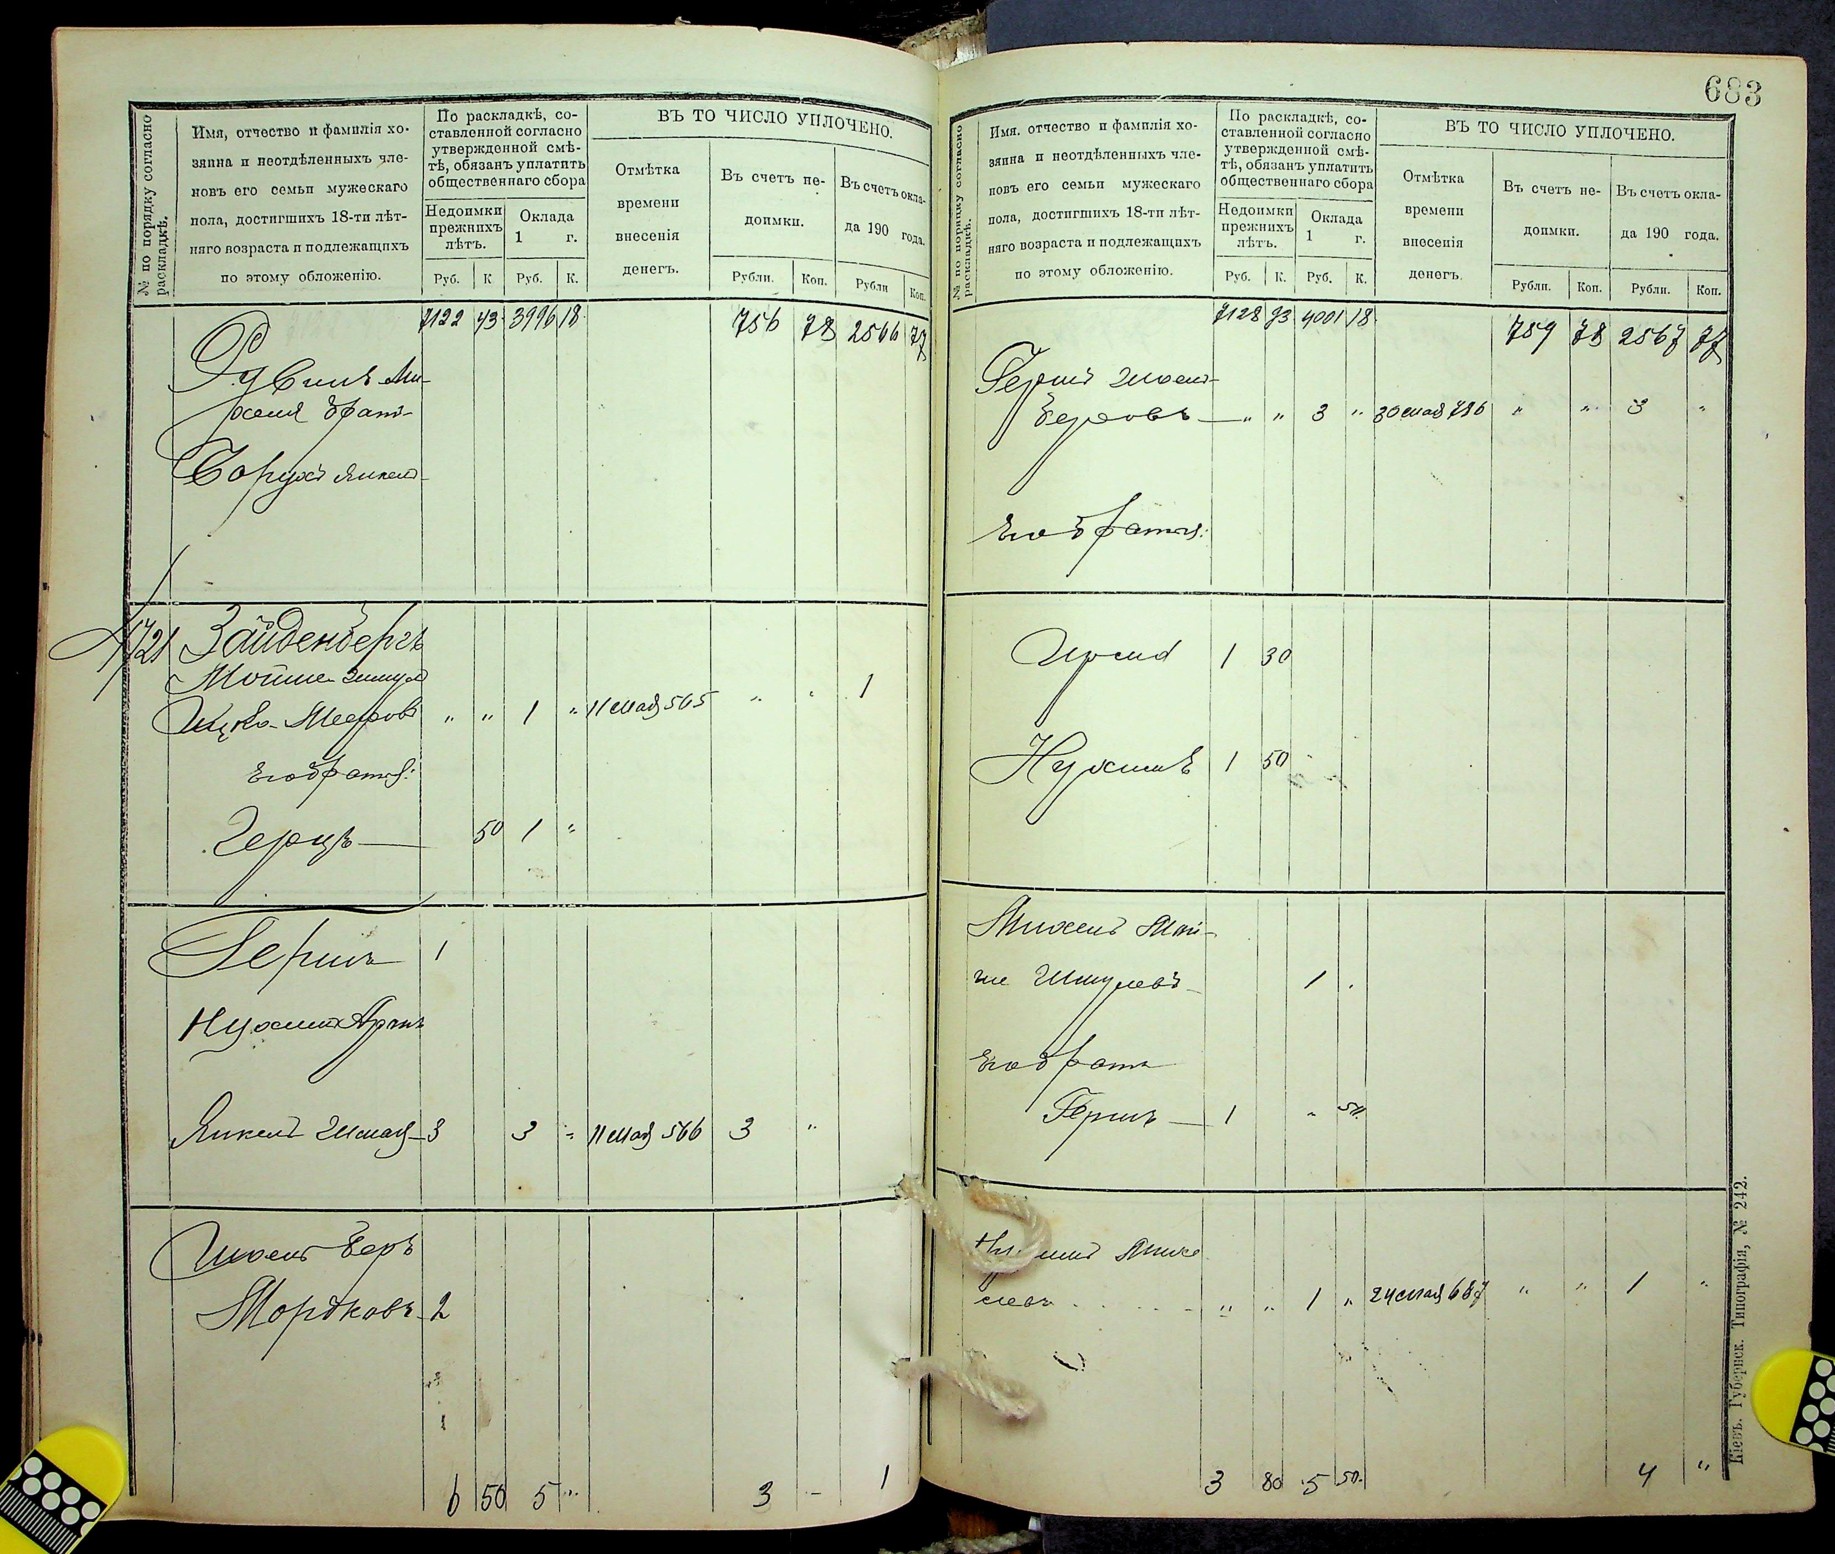 № по порядку согласно раскладкѣ.
Имя, отчество и фамилія хо-
зяина и неотдѣленныхъ чле-
новъ его семьи мужескаго
пола, достигшихъ 18-ти лѣт-
няго возраста и подлежащихъ
по этому обложенію.
По раскладкѣ, со-
ставленной согласно
утвержденной смѣ-
тѣ, обязанъ уплатить
общественнаго сбора
Недоимки
прежнихъ
лѣтъ.
Оклада
1 г.
Руб. К Руб. К.
ВЪ ТО ЧИСЛО УПЛОЧЕНО.
Отмѣтка
времени
внесенія
денегъ.
Въ счетъ не-
доимки.
Въ счетъ окла-
да 190 года.
Рубли. Коп. Рубли Коп.
7122 43 3996 18 756 78 2566 77
Рувинъ Ми-
хеля братъ
Борухъ Янкел-
1721 Зайденбергъ
Мойше Шмул
Ицко-Мееровъ " " 1 " 11 мая 565 " " 1
Его братья:
Герцъ — 50 1 "
Гершъ 1
Нухимъ Аронъ
Янкель 3 3 " 11 мая 566 3 "
Шоель Беръ
Мордковъ 2
6 50 5 " 3 - 1
683
№ по порядку согласно раскладкѣ.
Имя. отчество и фамилія хо-
зяина и неотдѣленныхъ чле-
новъ его семьи мужескаго
пола, достигшихъ 18-ти лѣт-
няго возраста и подлежащихъ
по этому обложенію.
По раскладкѣ, со-
ставленной согласно
утвержденной смѣ-
тѣ, обязанъ уплатить
общественнаго сбора
Недоимки
прежнихъ
лѣтъ.
Оклада
1 г.
Руб. К. Руб. К.
ВЪ ТО ЧИСЛО УПЛОЧЕНО.
Отмѣтка
времени
внесенія
денегъ.
Въ счетъ не-
доимки.
Въ счетъ окла-
да 190 года.
Рубли. Коп. Рубли. Коп.
7128 93 4001 18 759 78 2567 77
Гершъ Шоел-
Беровъ — " " 3 " 30 мая 786 " " 3 "
Его братья:
1 30
Нухимъ 1 50
Михель Мой-
ше Шмулевъ 1 .
Его братъ
Гершъ — 1 " 50
Янке
левъ " " 1 " 24 мая 687 " " 1 "
3 80 5 50. 4 "
Кіевъ. Губернск. Типографія, № 242.